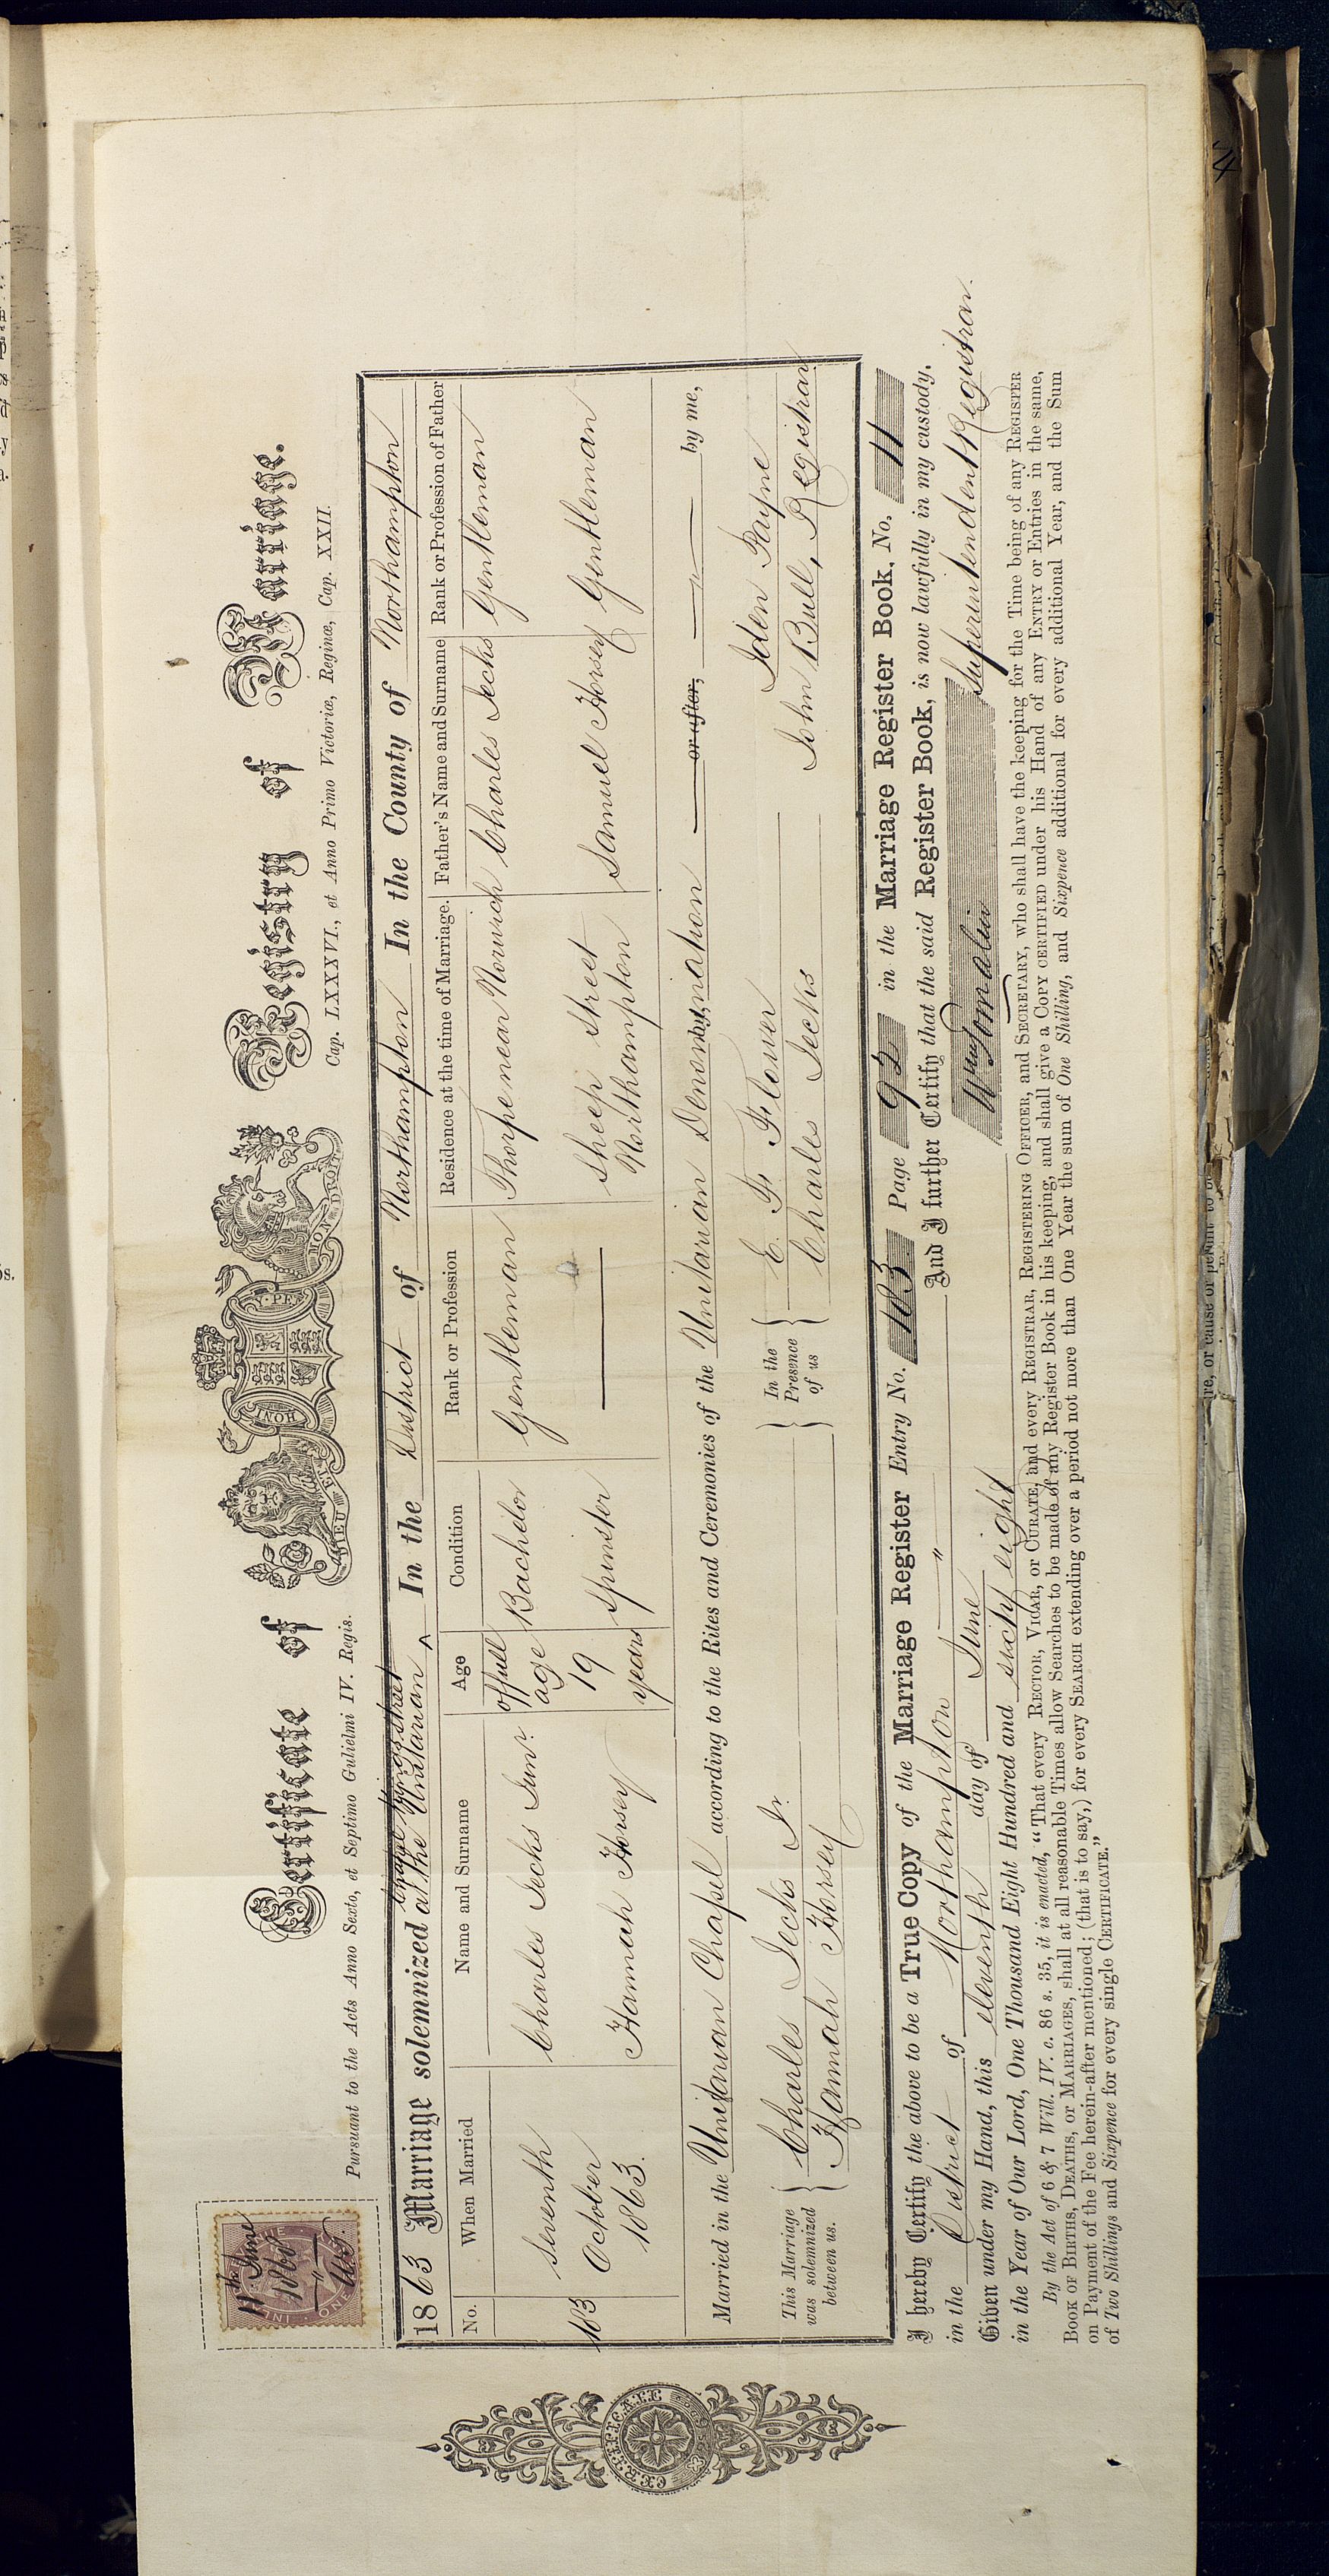 11th June
1868
W.T.
Certificate of Registry of Marriage.
DIEU ET MON DROIT
Pursuant to the Acts Anno Sexto, et Septimo Gulielmi IV. Regis. Cap. LXXXVI., et Anno Primo Victoriæ, Reginæ, Cap. XXII.
Chapel Kings Street
1863 Marriage solemnized at the Unitarian ^ In the District of Northampton In the County of Northampton
No. When Married Name and Surname Age Condition Rank or Profession Residence at the time of Marriage. Father's Name and Surname Rank or Profession of Father
183 Seventh October 1863. Charles Jecks Junr. of full age Bachelor Gentleman Thorpe near Norwich Charles Jecks Gentleman
Hannah Horsey 19 years Spinster Sheep Street Northampton Samuel Horsey Gentleman
Married in the Unitarian Chapel according to the Rites and Ceremonies of the Unitarian Denomination by, or after, by me,
This Marriage was solemnized between us. Charles Jecks Jr. Hannah Horsey In the Presence of us E. F. Flower Charles Jecks Iden Payne John Bull, Registrar
I hereby Certify the above to be a True Copy of the Marriage Register Entry No. 183 Page 92 in the Marriage Register Book, No. 11
in the District of Northampton " And I further Certify that the said Register Book, is now lawfully in my custody.
Given under my Hand, this eleventh day of June Wm Tomalin Superintendent Registrar.
in the Year of Our Lord, One Thousand Eight Hundred and sixty eight
By the Act of 6 & 7 Will. IV. c. 86 s. 35, it is enacted, "That every RECTOR, VICAR, or CURATE, and every REGISTRAR, REGISTERING OFFICER, and SECRETARY, who shall have the keeping for the Time being of any REGISTER
BOOK OF BIRTHS, DEATHS, or MARRIAGES, shall at all reasonable Times allow Searches to be made of any Register Book in his keeping, and shall give a COPY CERTIFIED under his Hand of any ENTRY or Entries in the same,
on Payment of the Fee herein-after mentioned; (that is to say,) for every SEARCH extending over a period not more than One Year the sum of One Shilling, and Sixpence additional for every additional Year, and the Sum
of Two Shillings and Sixpence for every single CERTIFICATE."
CERTIFICATE